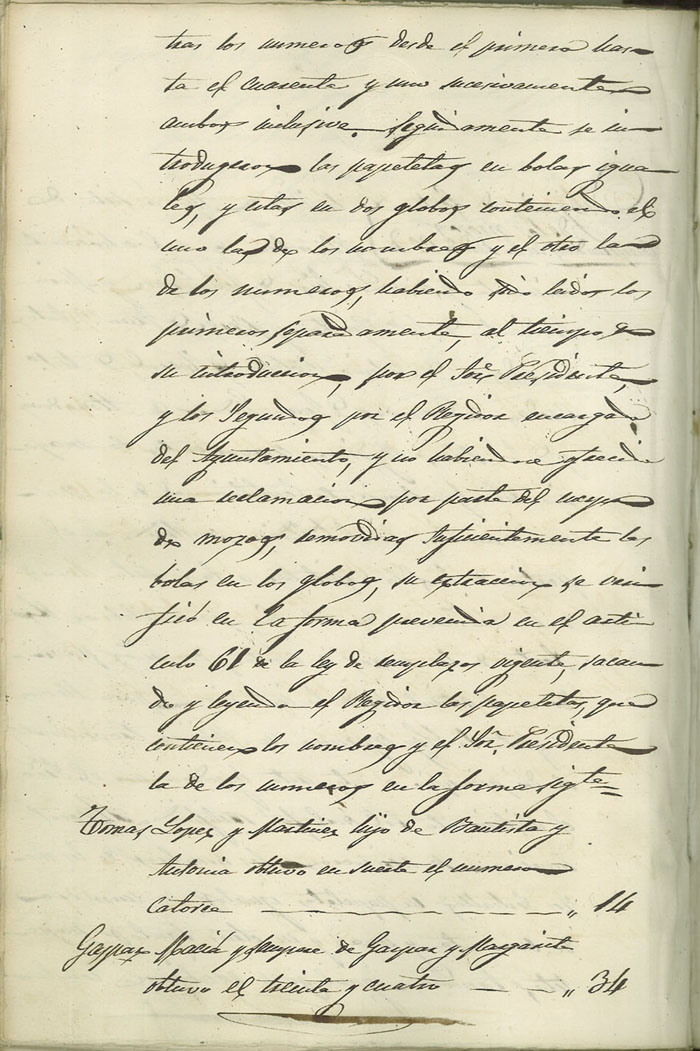 tras los numeros desde el primero has-
ta el cuarenta y uno sucesivamente
ambos inclusive. Seguidamente se in-
trodugeron las papeletas en bolas igua-
les, y estas en dos globos conteniendo el
uno las de los nombres y el otro las
de los numeros, habiendo sido leidos los
primeros separadamente, al tiempo de
su introduccion, por el Sor. Presidente,
y los Segundos por el Regidor encargado
del Ayuntamiento, y no habiendose ofrecido
una reclamacion por parte del
de mozos, removidas suficientemente las
bolas en los globos, su estraccion se veri-
ficó en la forma prevenida en el arti-
culo 61 de la ley de remplazos vigente, sacan-
do y leyendo el Regidor las papeletas, que
contienen los nombres y el Sor. Presidente
la de los numeros en la forma sigte=
Tomas Lopez y Martinez hijo de Bautista y
Antonia obtuvo en suerte el numero
Catorce — — — — — „ 14
Gaspar Maciá y de Gaspar y Margarita
obtuvo el treinta y cuatro — — „ 34